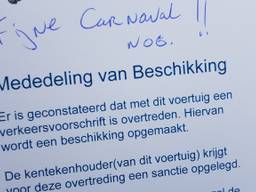 Fijne Carnaval !!
NOG.
Mededeling van Beschikking
Er is geconstateerd dat met dit voertuig een
verkeersvoorschrift is overtreden. Hiervan
wordt een beschikking opgemaakt.
De kentekenhouder(van dit voertuig) krijgt
voor deze overtreding een sanctie opgelegd.